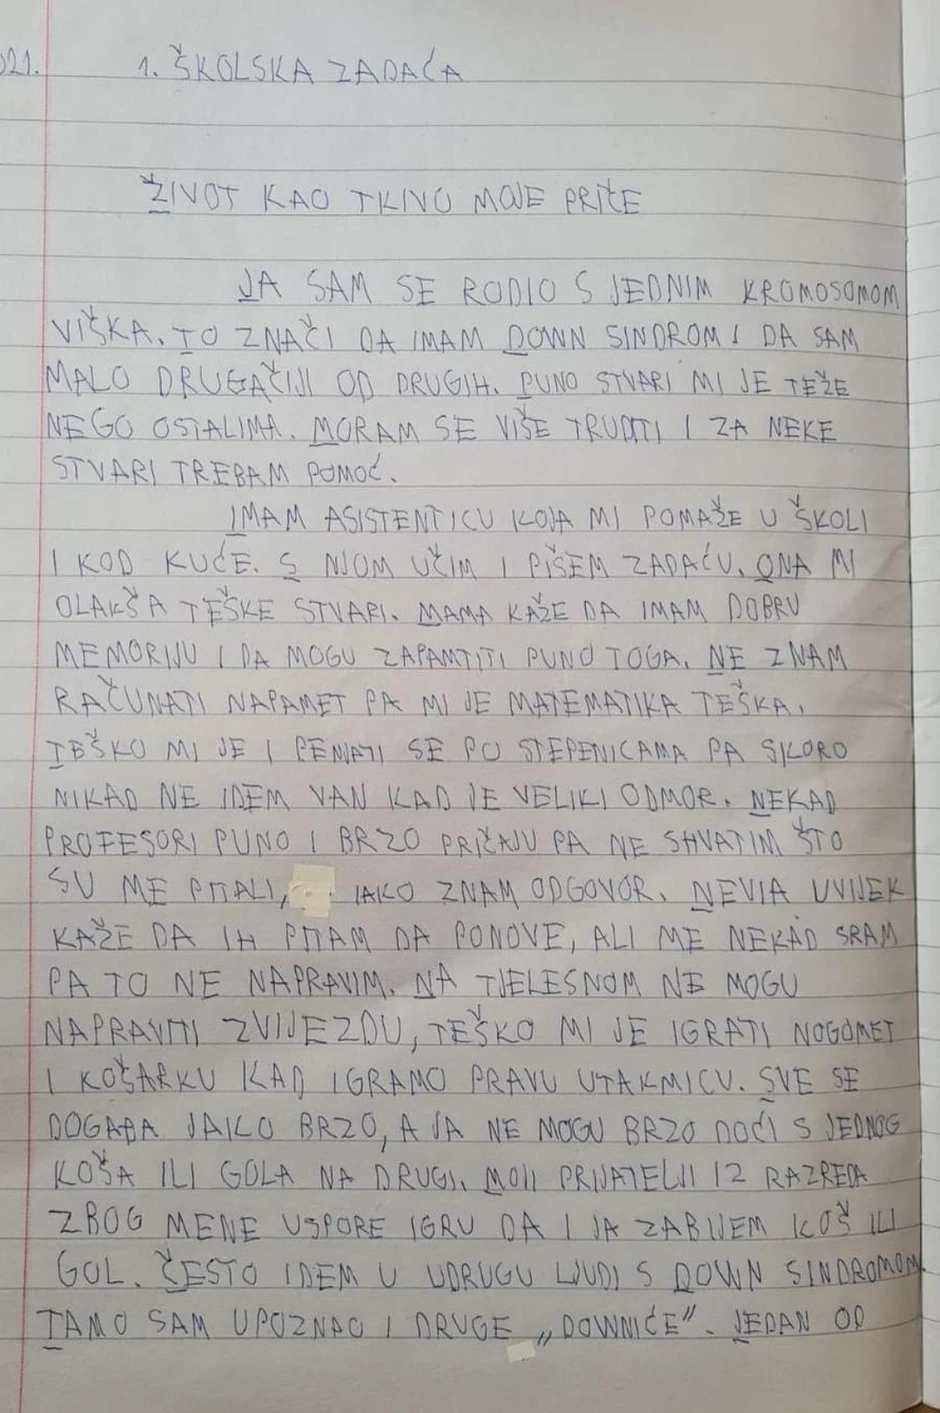 021.
1. ŠKOLSKA ZADAĆA
ŽIVOT KAO TKIVO MOJE PRIČE
JA SAM SE RODIO S JEDNIM KROMOSOMOM
VIŠKA. TO ZNAČI DA IMAM DOWN SINDROM I DA SAM
MALO DRUGAČIJI OD DRUGIH. PUNO STVARI MI JE TEŽE
NEGO OSTALIMA. MORAM SE VIŠE TRUDITI I ZA NEKE
STVARI TREBAM POMOĆ.
IMAM ASISTENTICU KOJA MI POMAŽE U ŠKOLI
I KOD KUĆE. S NJOM UČIM I PIŠEM ZADAĆU. ONA MI
OLAKŠA TEŠKE STVARI. MAMA KAŽE DA IMAM DOBRU
MEMORIJU I DA MOGU ZAPAMTITI PUNO TOGA. NE ZNAM
RAČUNATI NAPAMET PA MI JE MATEMATIKA TEŠKA.
TEŠKO MI JE I PENJATI SE PO STEPENICAMA PA SKORO
NIKAD NE IDEM VAN KAD JE VELIKI ODMOR. NEKAD
PROFESORI PUNO I BRZO PRIČAJU PA NE SHVATIM ŠTO
SU ME PITALI, IAKO ZNAM ODGOVOR. NEVIA UVIJEK
KAŽE DA IH PITAM DA PONOVE, ALI ME NEKAD SRAM
PA TO NE NAPRAVIM. NA TJELESNOM NE MOGU
NAPRAVITI ZVIJEZDU, TEŠKO MI JE IGRATI NOGOMET
I KOŠARKU KAD IGRAMO PRAVU UTAKMICU. SVE SE
DOGAĐA JAKO BRZO, A JA NE MOGU BRZO DOĆI S JEDNOG
KOŠA ILI GOLA NA DRUGI. MOJI PRIJATELJI IZ RAZREDA
ZBOG MENE USPORE IGRU DA I JA ZABIJEM KOŠ ILI
GOL. ČESTO IDEM U UDRUGU LJUDI S DOWN SINDROMOM.
TAMO SAM UPOZNAO I DRUGE „DOWNIĆE". JEDAN OD